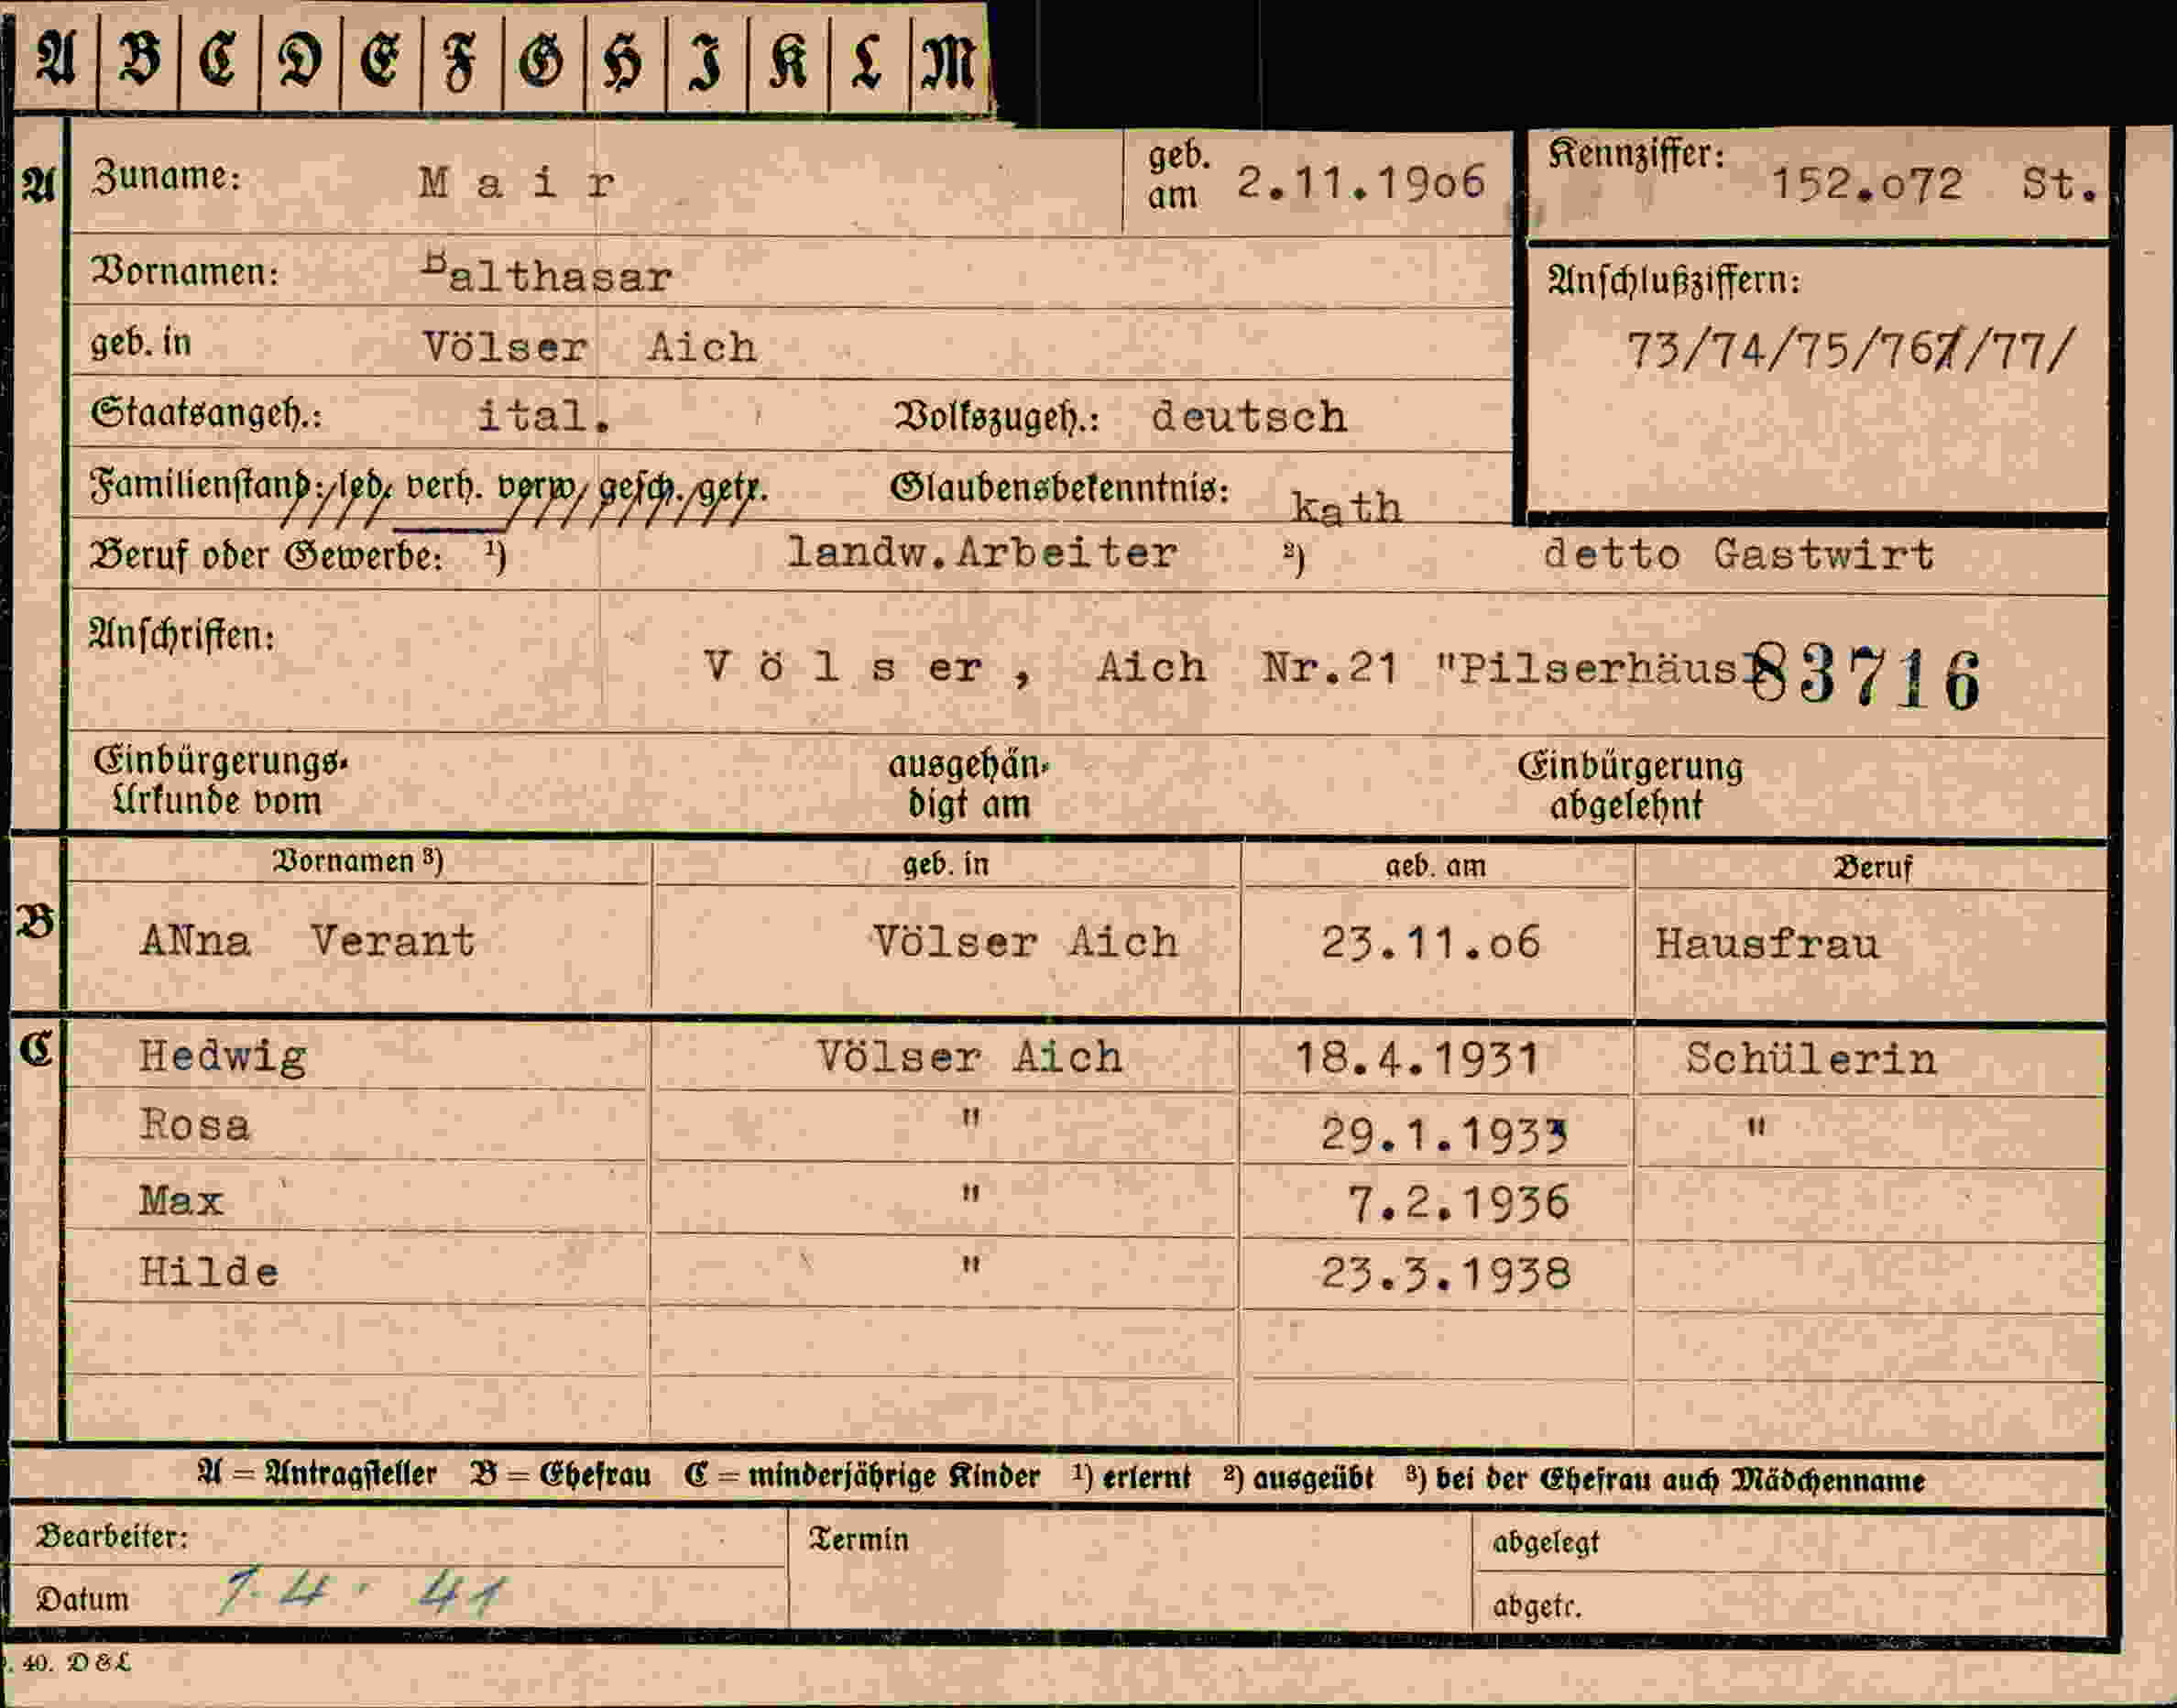 A B C D E F G H I K L M
A Zuname: Mair geb. am 2.11.19o6 Kennziffer: 152.o72 St.
Vornamen: Balthasar Anschlußziffern:
geb. in Völser Aich 73/74/75/76/77/
Staatsangeh.: ital. Volkszugeh.: deutsch
Familienstand: led. verh. verw. gesch. getr. Glaubensbekenntnis: kath
Beruf oder Gewerbe: 1) landw.Arbeiter 2) detto Gastwirt
Anschriften: Völser, Aich Nr.21 "Pilserhäusl 83716
Einbürgerungs-Urkunde vom ausgehändigt am Einbürgerung abgelehnt
Vornamen 3) geb. in geb. am Beruf
B ANna Verant Völser Aich 23.11.o6 Hausfrau
C Hedwig Völser Aich 18.4.1931 Schülerin
Rosa " 29.1.1933 "
Max " 7.2.1936
Hilde " 23.3.1938
A = Antragsteller B = Ehefrau C = minderjährige Kinder 1) erlernt 2) ausgeübt 3) bei der Ehefrau auch Mädchenname
Bearbeiter: Termin abgelegt
Datum 7.4. 41 abgetr.
. 40. D & L